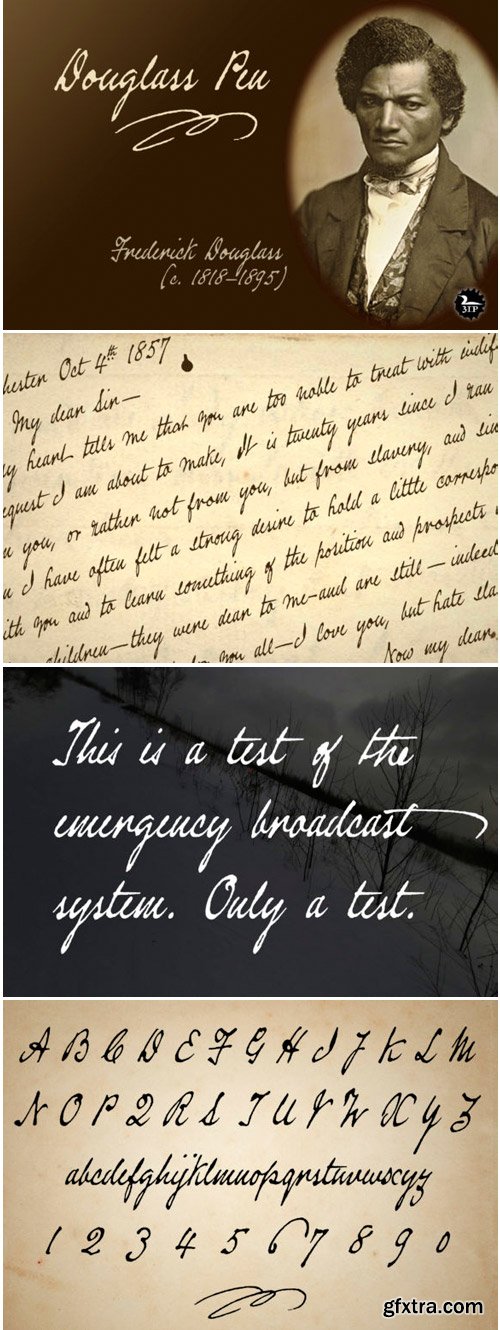 Douglass Pen
Frederick Douglass
(c. 1818–1895)
3IP
hester Oct 4th 1857
My dear Sir—
y heart tells me that you are too noble to treat with indif
equest I am about to make, It is twenty years since I ran
u you, or rather not from you, but from slavery, and sin
u I have often felt a strong desire to hold a little correspo
ith you and to learn something of the position and prospects
children—they were dear to me—and are still—indeed
you all—I love you, but hate sla
Now my dear
This is a test of the
emergency broadcast
system. Only a test.
A B C D E F G H I J K L M
N O P Q R S T U V W X Y Z
abcdefghijklmnopqrstuvwxyz
1 2 3 4 5 6 7 8 9 0
gfxtra.com